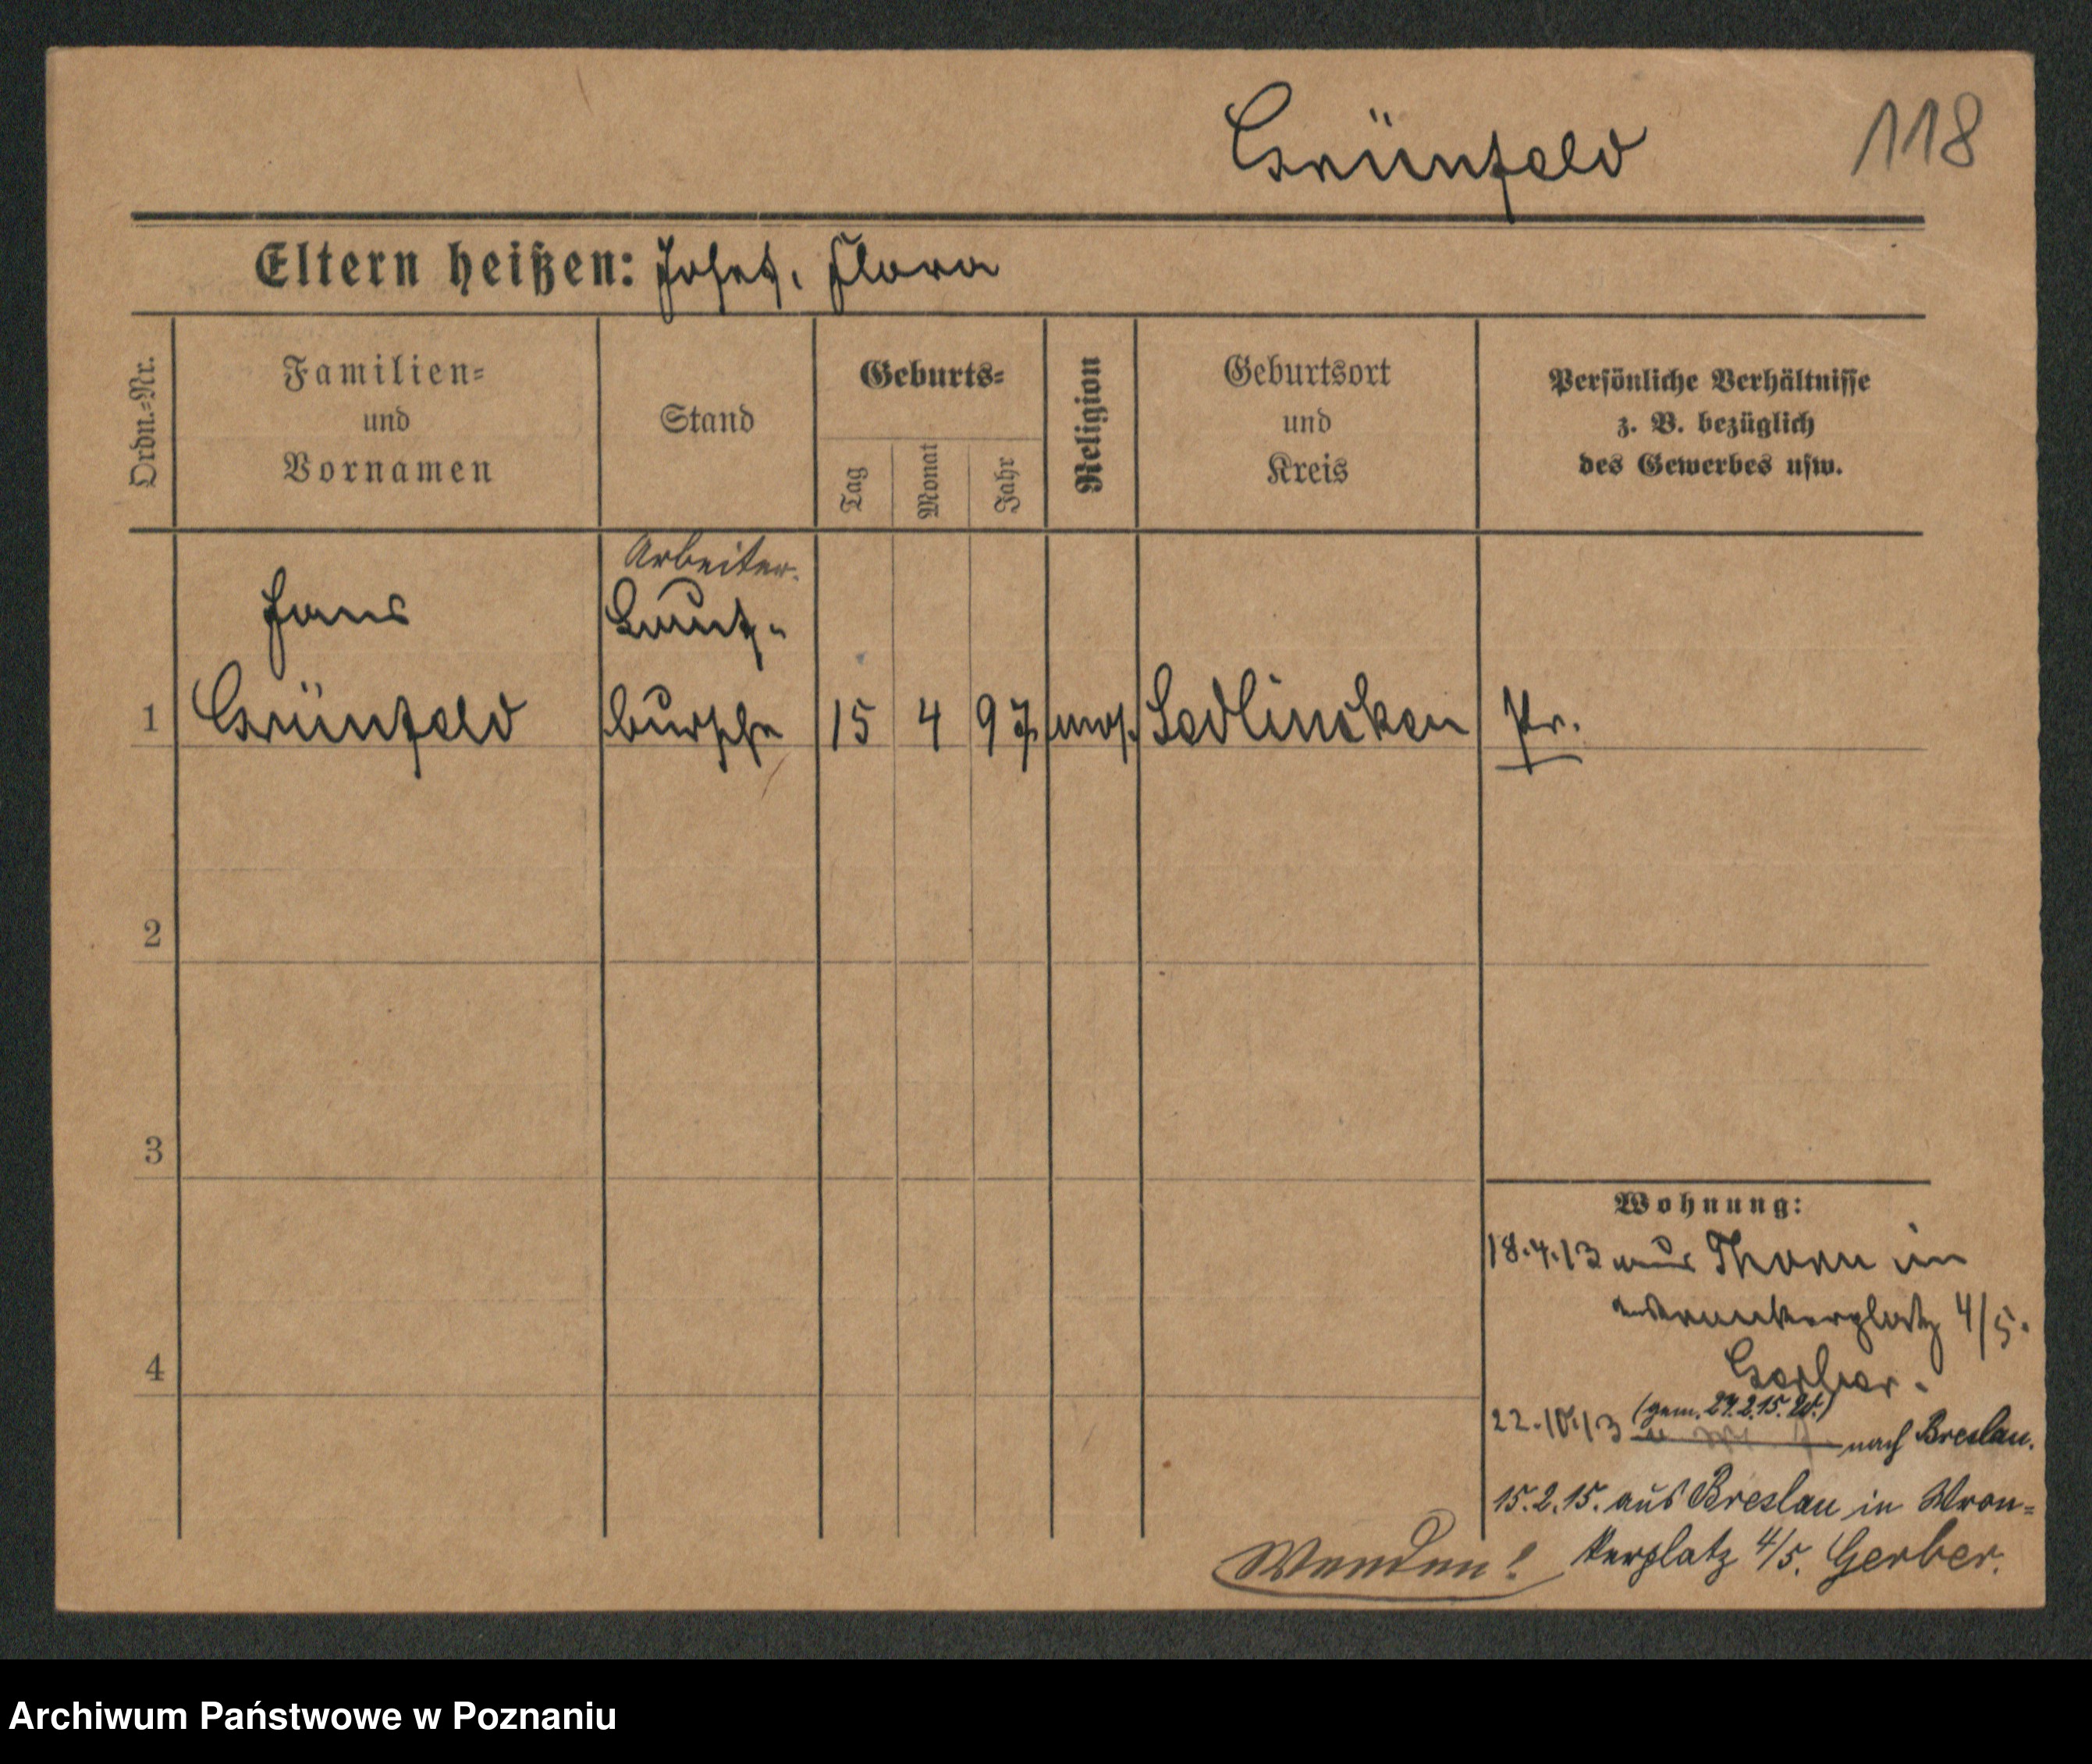 Grünfeld
118
Eltern heißen: Josef, Flora
Ordn.-Nr.
Familien-
und
Vornamen
Stand
Geburts-
Tag
Monat
Jahr
Religion
Geburtsort
und
Kreis
Persönliche Verhältnisse
z. B. bezüglich
des Gewerbes usw.
Arbeiter.
Hans
Lauf-
1 Grünfeld bursche 15 4 97 mos. Sedlincken Pr.
2
3
4
Wohnung:
18.4.13 aus Thorn in
Wronkerplatz 4/5.
Gerber.
(gem. 27.2.15.
22.10.13 nach Breslau.
15.2.15. aus Breslau in Wron=
kerplatz 4/5. Gerber.
Wenden!
Archiwum Państwowe w Poznaniu